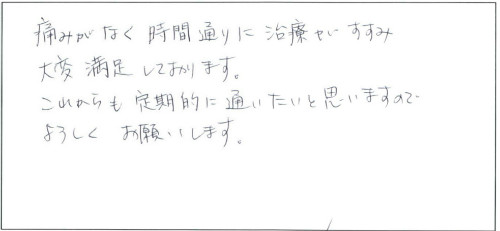 痛みがなく 時間通りに 治療がすすみ
大変満足しております。
これからも定期的に通いたいと思いますので
よろしく お願いします。